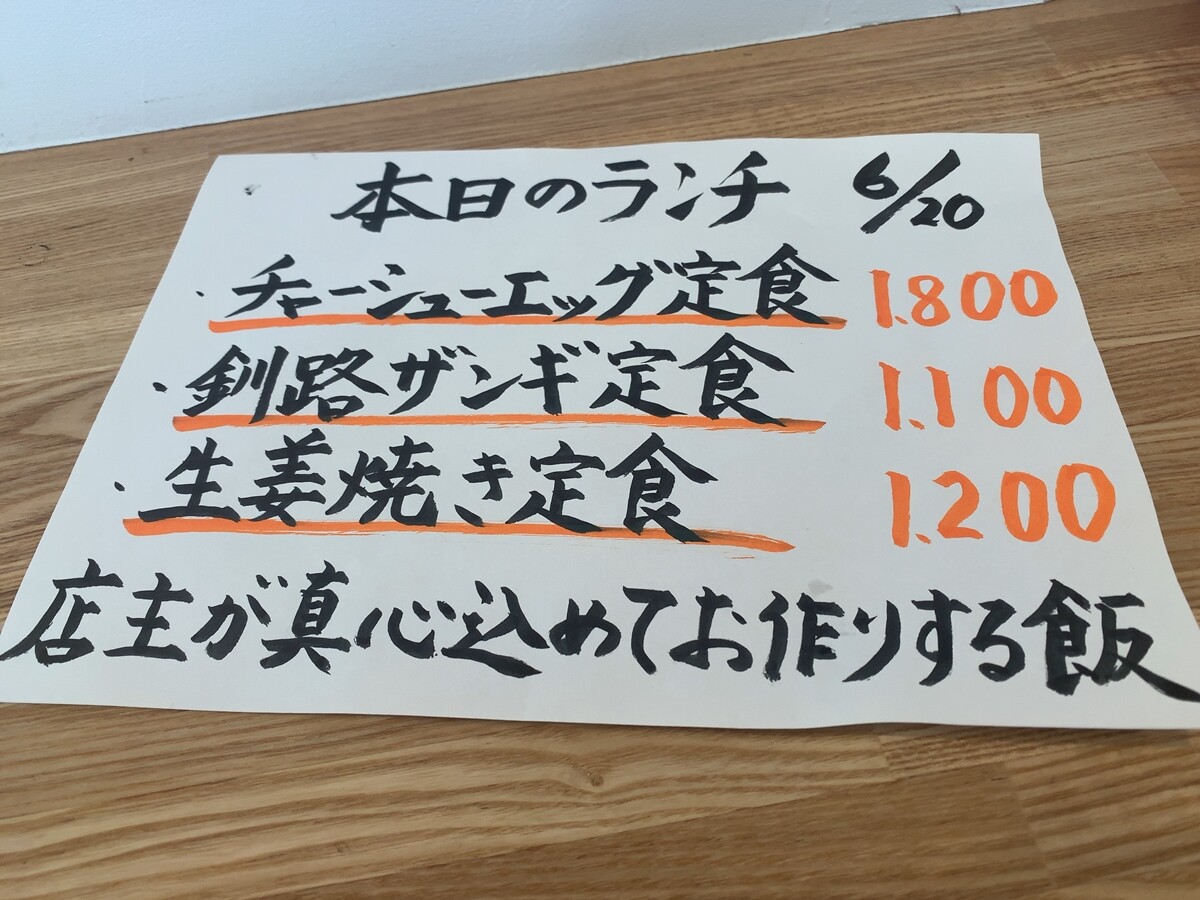 本日のランチ 6/20
・チャーシューエッグ定食 1.800
・釧路ザンギ定食 1.100
・生姜焼き定食 1.200
店主が真心込めてお作りする飯